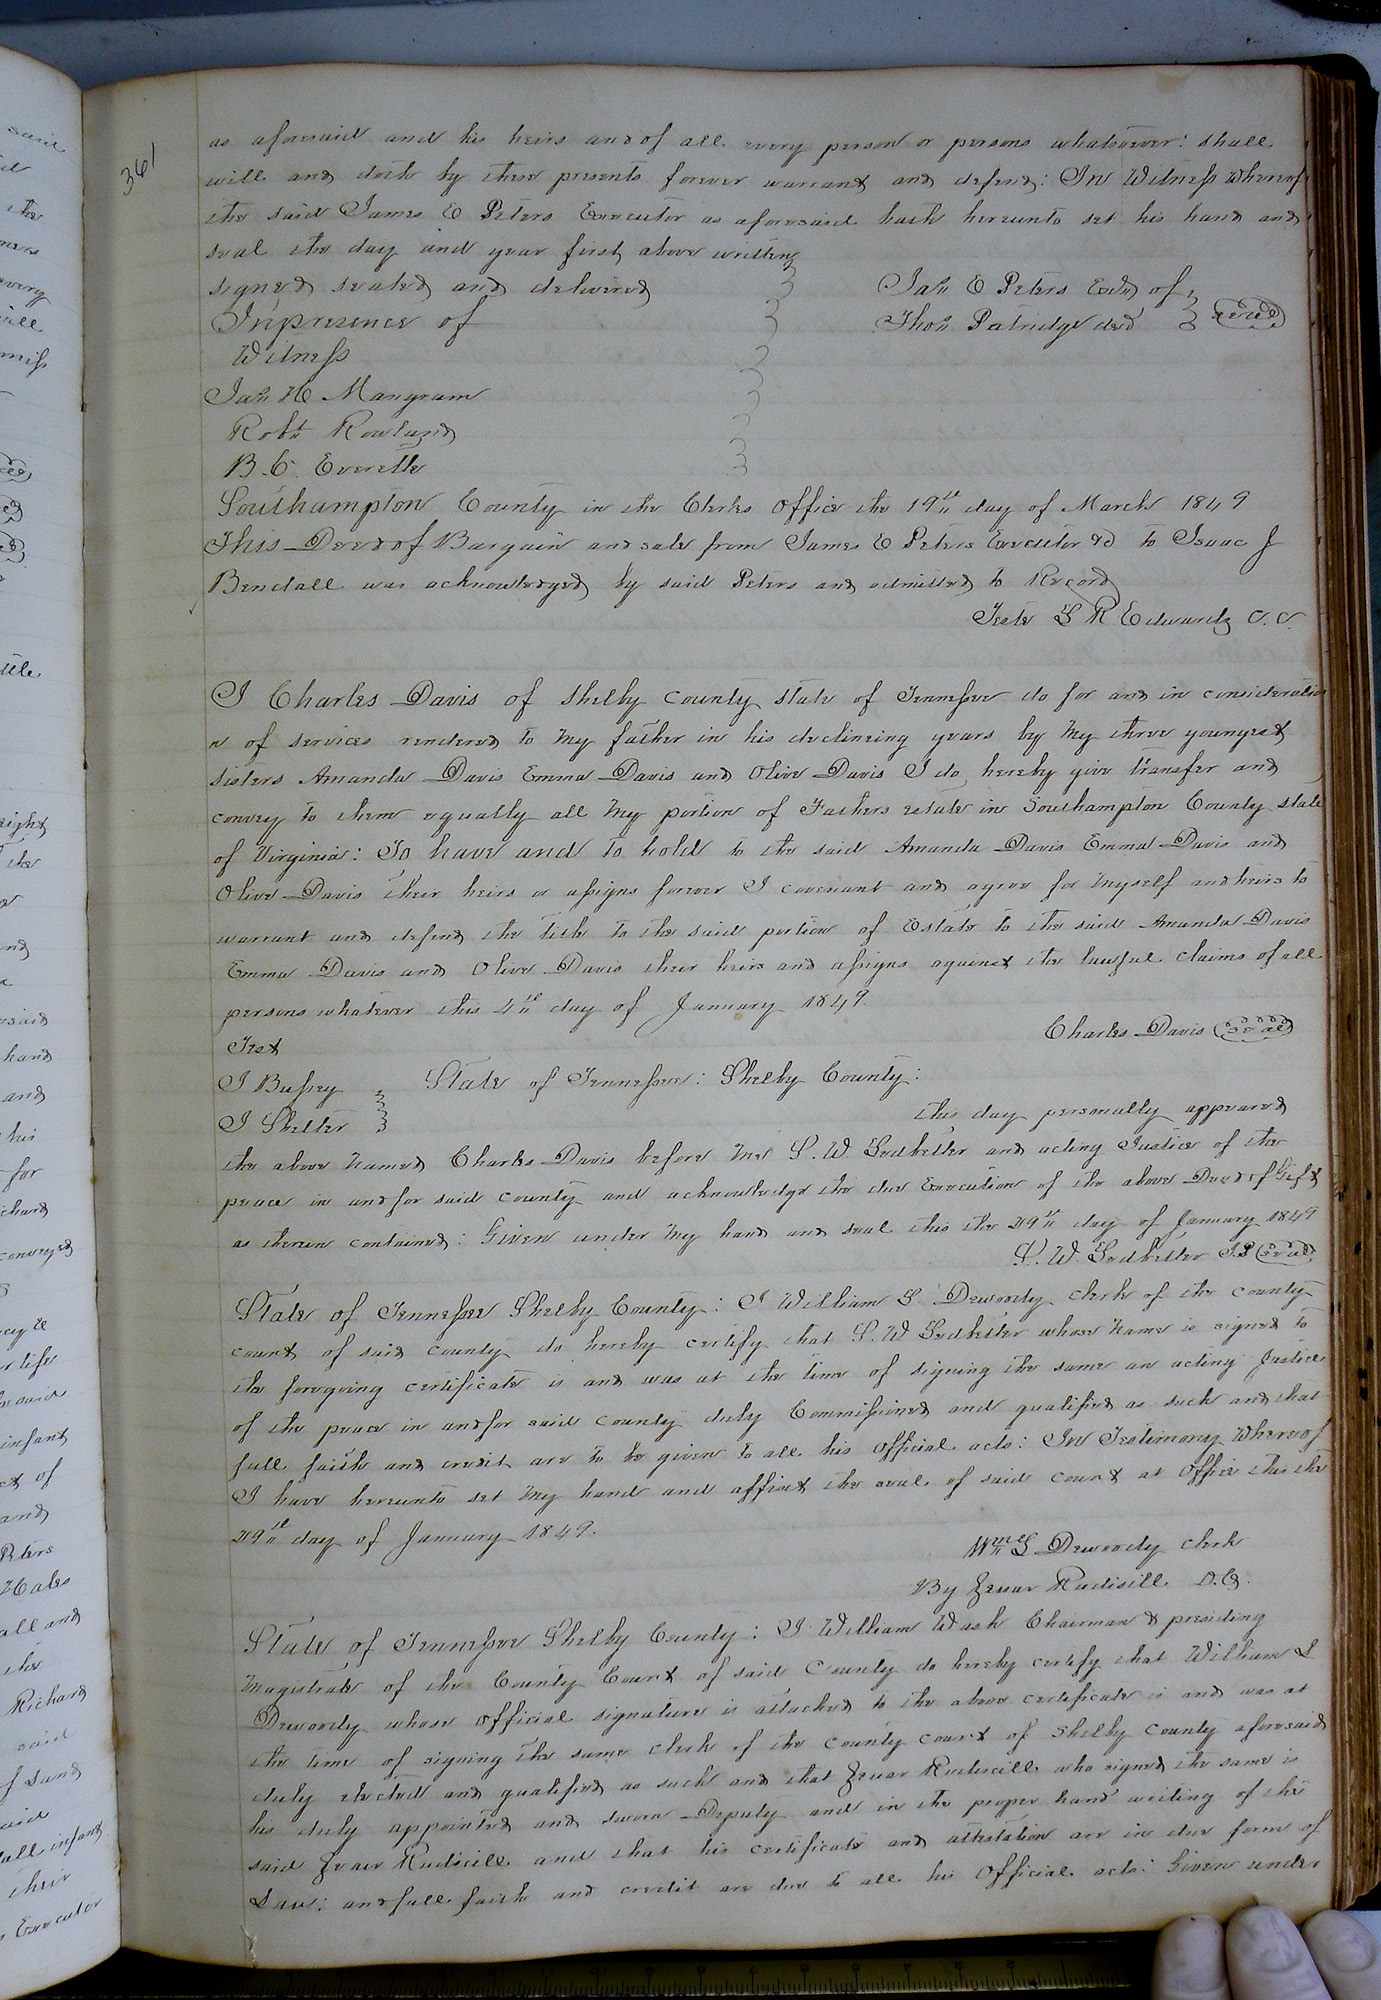 361
as aforesaid and his heirs and of all every person or persons whatsoever: shall
will and doth by these presents forever warrant and defend: In Witness Whereof
the said James E Peters Executor as aforesaid hath hereunto set his hand and
seal the day and year first above written
signed sealed and delivered
Inpresence of
Witness
Jas H Mangram
Robt Rowland
B. C. Everette
Jas E Peters Exr of
Thos Patridge decd seal
Southampton County in the Clerks Office the 19th day of March 1849
This Deed of Bargain and sale from James E Peters Executor &c to Isaac J
Bendall was acknowledged by said Peters and admitted to Record
Teste L R Edwards C.C.
I Charles Davis of Shelby County State of Tennessee do for and in consideratio
n of services rendered to My father in his declineing years by My three youngest
sisters Amanda Davis Emma Davis and Olive Davis I do hereby give transfer and
convey to them equally all My portion of Fathers estate in Southampton County state
of Virginia: To have and To hold to the said Amanda Davis Emma Davis and
Olive Davis their heirs or assigns forever I covenant and agree for Myself and heirs to
warrant and defend the title to the said portion of Estate to the said Amanda Davis
Emma Davis and Olive Davis their heirs and assigns against the lawful claims of all
persons whatever this 4th day of January 1849.
Charles Davis seal
Test
J Bussey
J Shelter
State of Tennessee: Shelby County:
this day personally appeared
the above Named Charles Davis before Me S. W. Ledbetter and acting Justice of the
peace in and for said County and acknowledge the due Execution of the above Deed of Gift
as therein contained: Given under My hand and seal this the 29th day of January 1849
S. W. Ledbetter J.P seal
State of Tennessee Shelby County: I William L Dewoody clerk of the County
court of said County do hereby certify that S. W Ledbetter whose Name is signed to
the foregoing certificate is and was at the time of signing the same an acting Justice
of the peace in and for said County duly Commissioned and qualified as such and that
full faith and credit are to be given to all his Official acts: In Testimony Whereof
I have hereunto set My hand and affixet the seal of said Court at Office this the
29th day of January 1849.
Wm L Dewoody Clerk
By Rudisill D.C.
State of Tennessee Shelby County: I William Wash Chairman & presiding
Magistrate of the County Court of said County do hereby certify that William L
Dewoody whose Official signature is attached to the above certificate is and was at
the time of signing the same clerk of the County court of Shelby County aforesaid
duly elected and qualified as such and that Rudiscill who signed the same is
his duly appointed and sworn Deputy and in the proper hand writing of the
said Rudiscill and that his certificate and attestation are in due form of
Law: and full faith and credit are due to all his Official acts: Given under